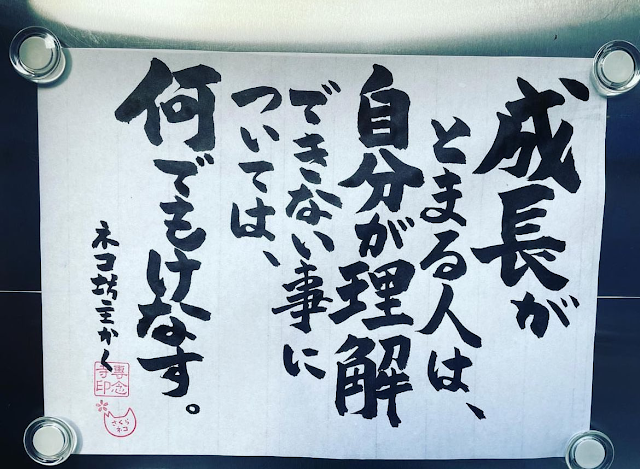 成長が
とまる人は、
自分が理解
できない事に
ついては、
何でもけなす。
ネコ坊主かく
専念
寺印
さくら
ネコ